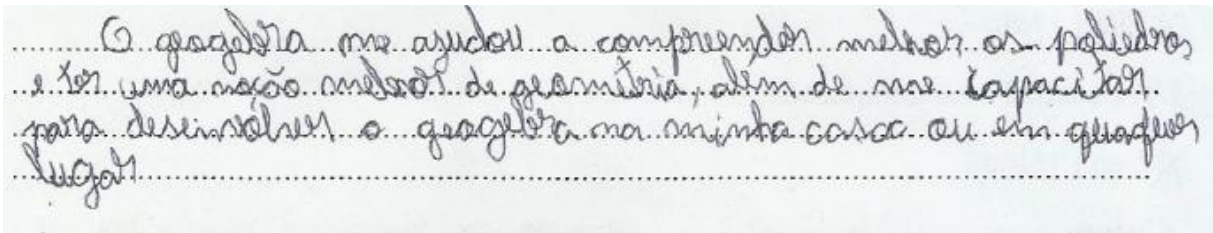 O geogebra me ajudou a compreender melhor os poliedros
e ter uma noção melhor de geometria, além de me capacitar
para deseinvolver o geogebra na minha casa ou em quaquer
lugar